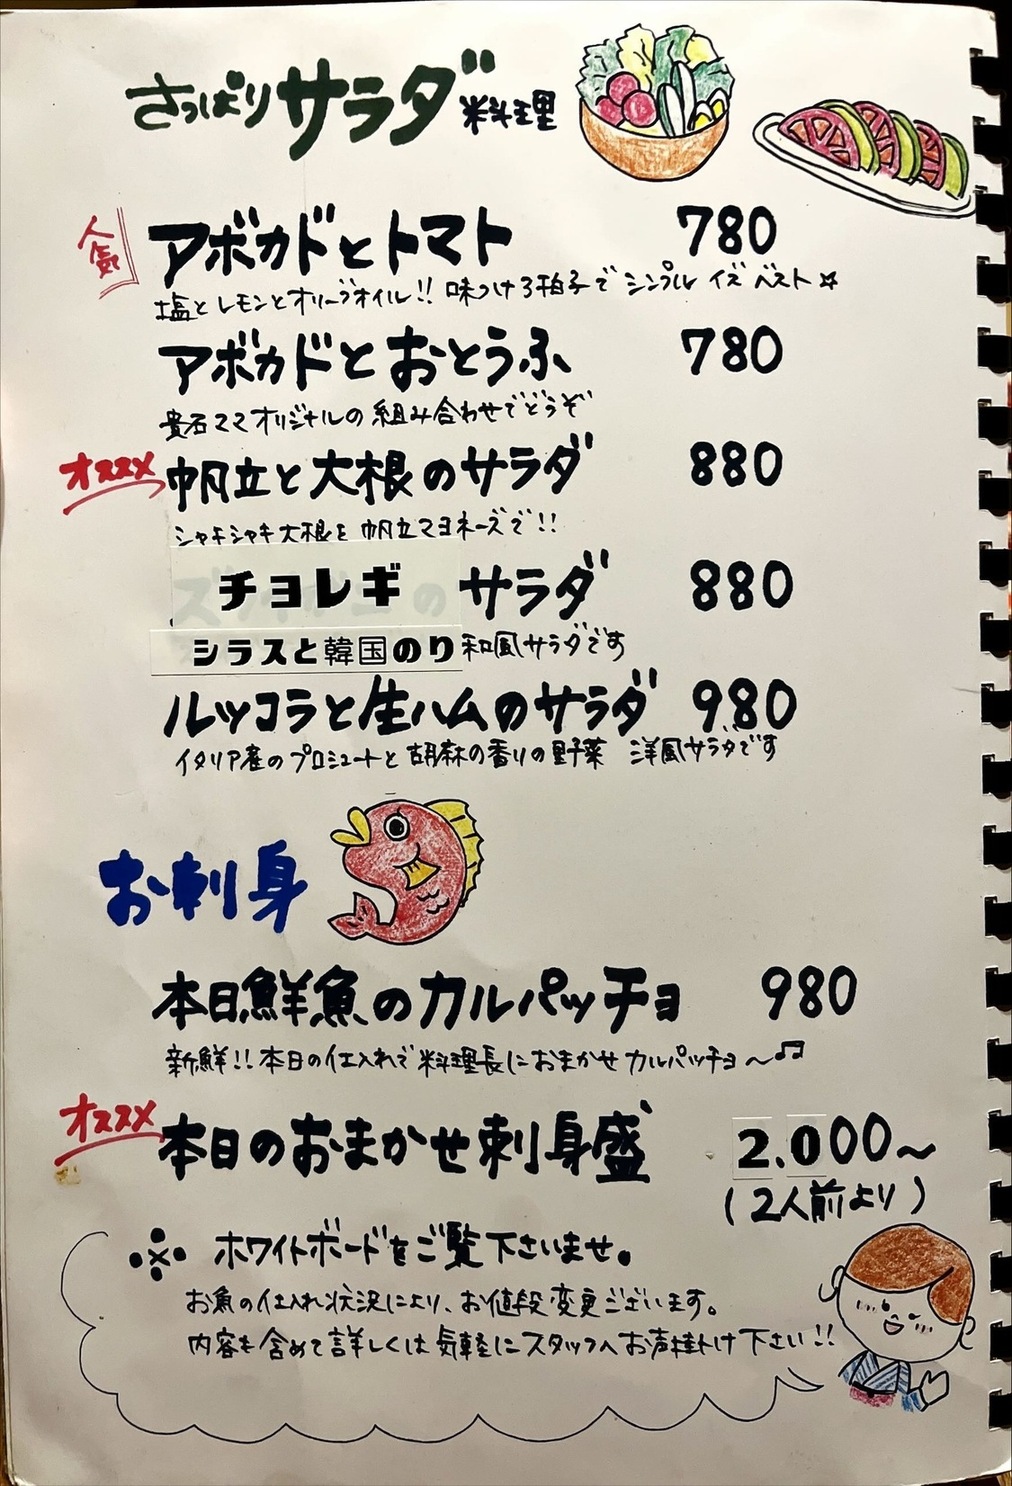 さっぱりサラダ料理
人気 アボカドとトマト 780
塩とレモンとオリーブオイル!! 味つけ3拍子でシンプル イズ ベスト☆
アボカドとおとうふ 780
貴石ママオリジナルの組み合わせでどうぞ
オススメ 帆立と大根のサラダ 880
シャキシャキ大根を帆立マヨネーズで!!
チョレギサラダ 880
シラスと韓国のり和風サラダです
ルッコラと生ハムのサラダ 980
イタリア産のプロシュートと胡麻の香りの野菜 洋風サラダです
お刺身
本日鮮魚のカルパッチョ 980
新鮮!!本日の仕入れで料理長におまかせカルパッチョ〜♫
オススメ 本日のおまかせ刺身盛 2.000〜
(2人前より)
※ ホワイトボードをご覧下さいませ。
お魚の仕入れ状況により、お値段変更ございます。
内容を含めて詳しくは気軽にスタッフへお声掛け下さい!!